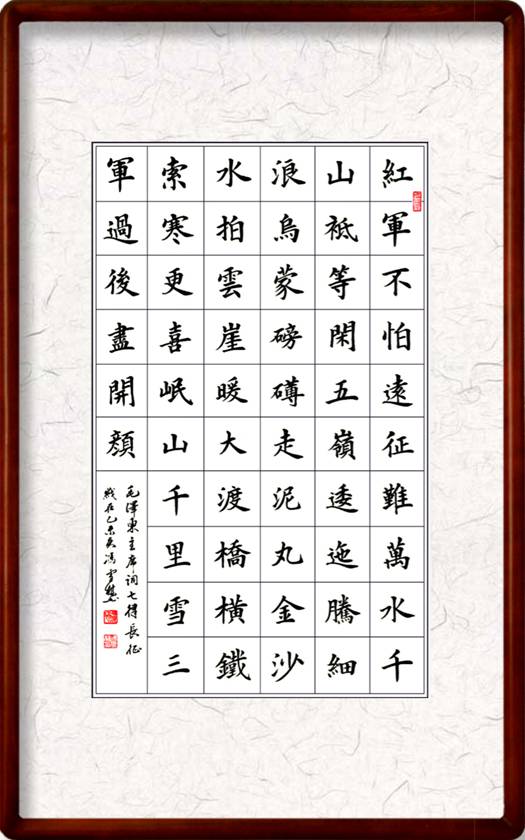 紅軍不怕遠征難萬水千
山祗等閑五嶺逶迤騰細
浪烏蒙磅礴走泥丸金沙
水拍雲崖暖大渡橋橫鐵
索寒更喜岷山千里雪三
軍過後盡開顏
毛澤東主席詞七律長征
歲在乙未冬馮雪